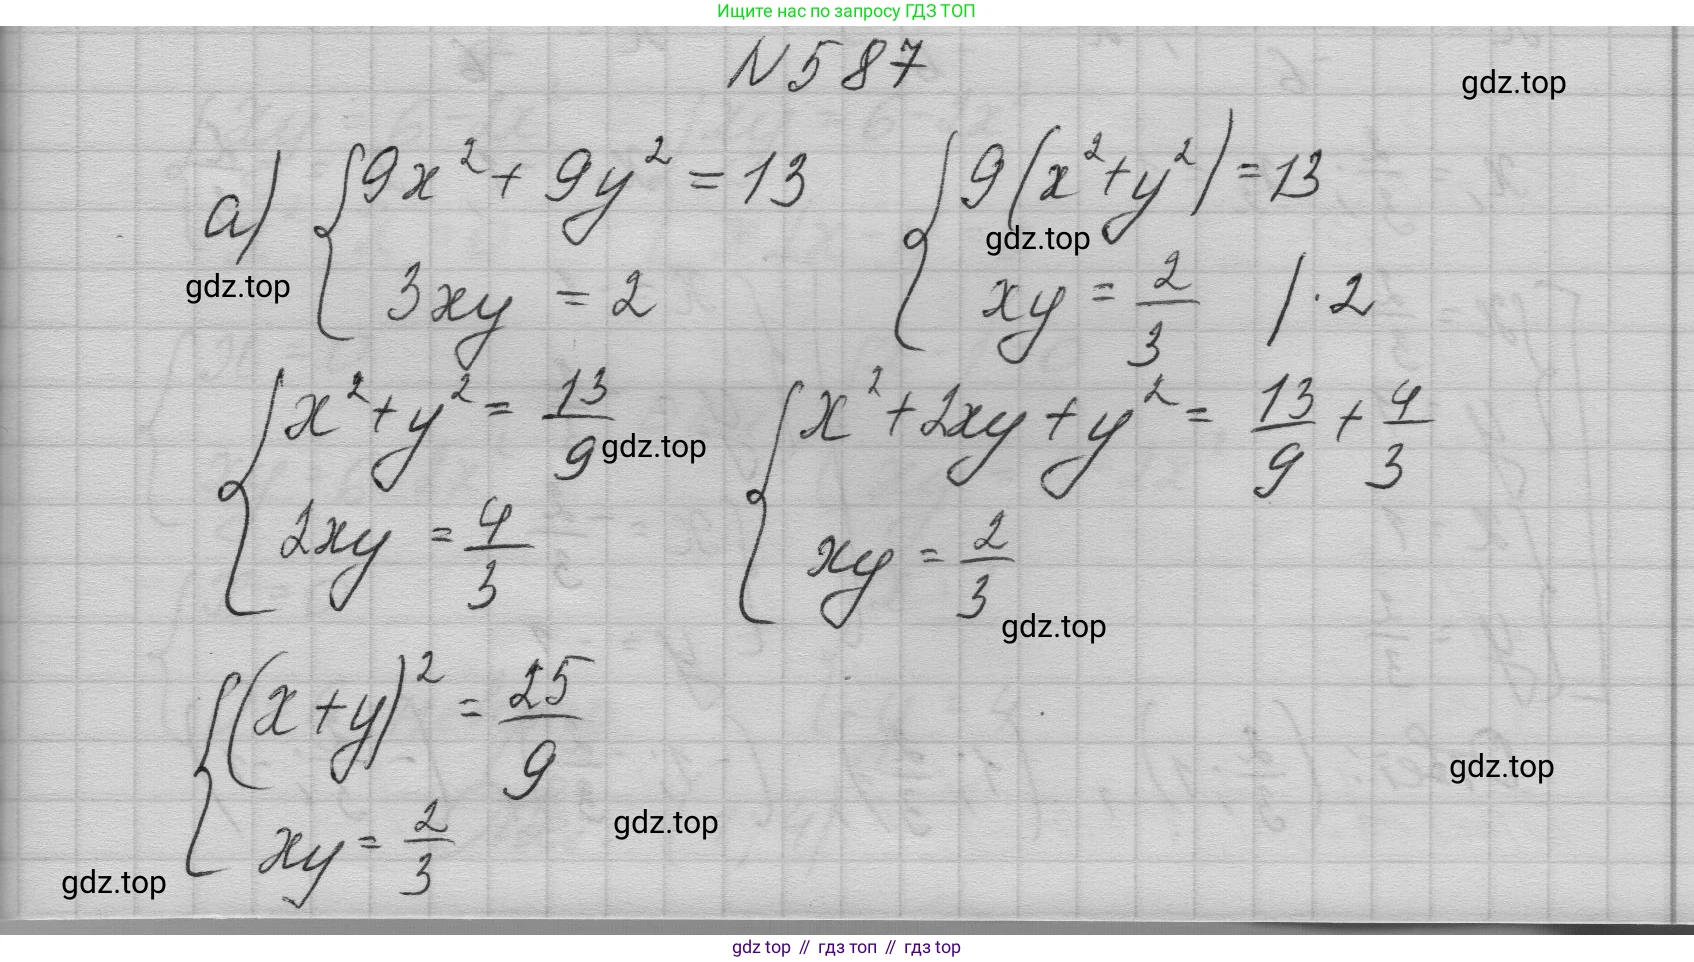 Ищите нас по запросу ГДЗ ТОП
N 587
gdz.top
а) { 9x² + 9y² = 13 { 9(x² + y²) = 13
gdz.top
3xy = 2 xy = 2/3 | · 2
gdz.top
{ x² + y² = 13/9 { x² + 2xy + y² = 13/9 + 4/3
gdz.top
2xy = 4/3 xy = 2/3
gdz.top
{ (x + y)² = 25/9
gdz.top
xy = 2/3
gdz.top
gdz.top
gdz top // гдз топ // гдз top